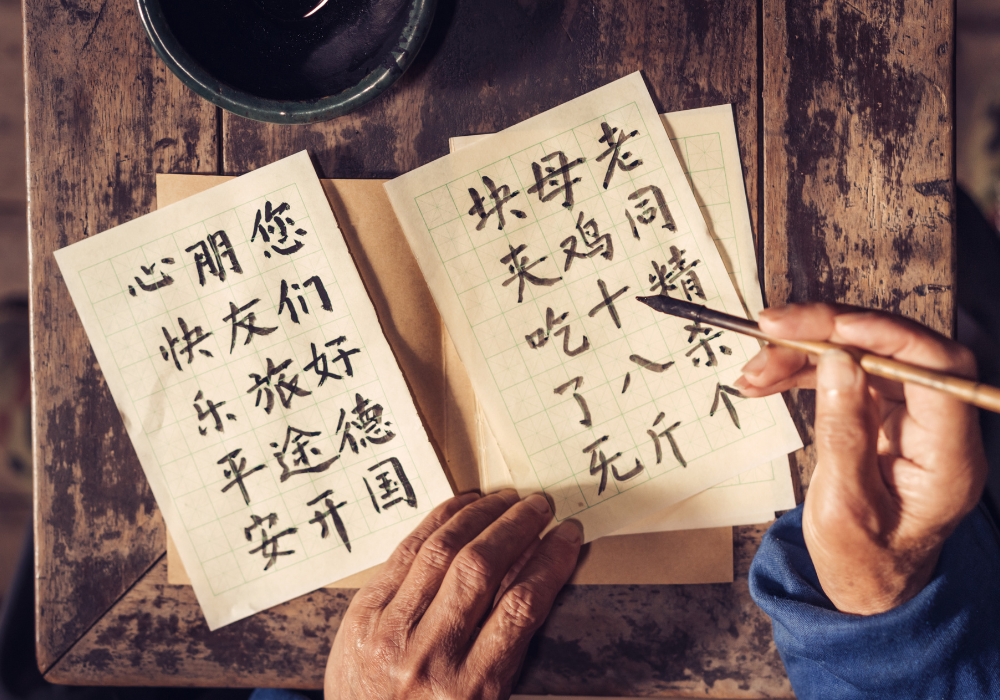 老同精杂个
母鸡十八斤
块夹吃了
您们好德国
朋友旅途开
心快乐平安